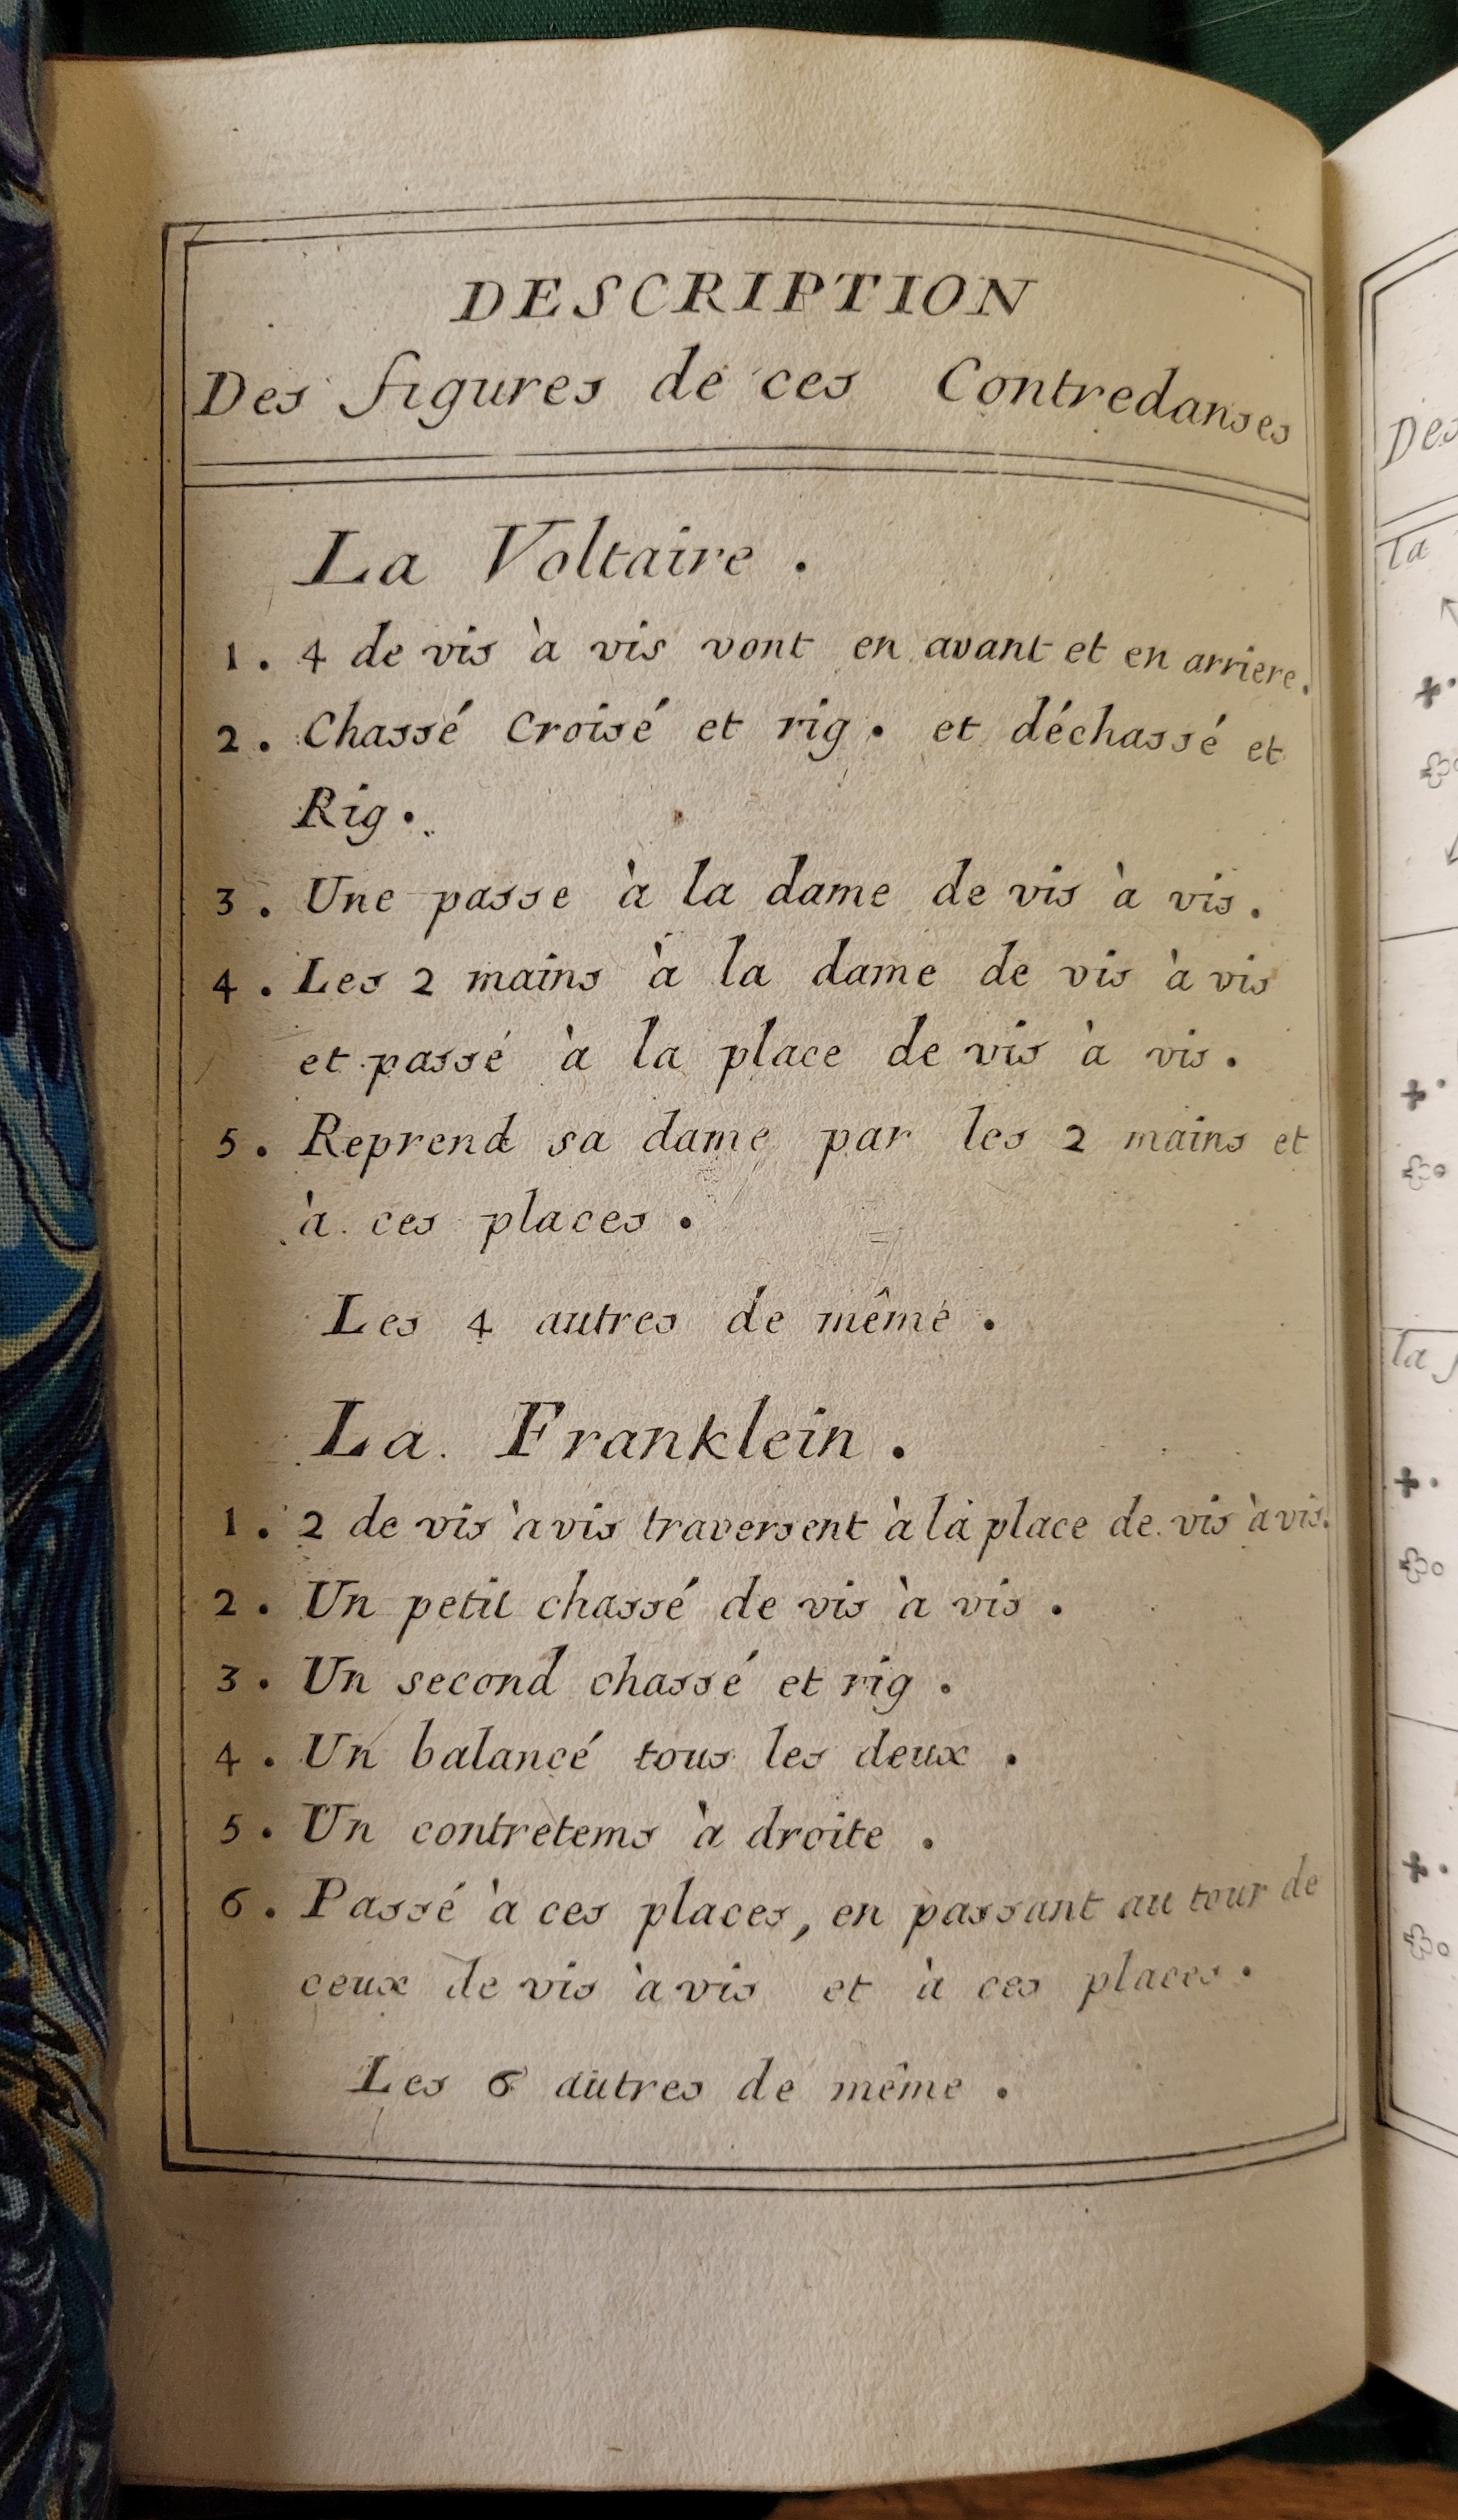 DESCRIPTION
Des figures de ces Contredanses
La Voltaire .
1 . 4 de vis à vis vont en avant et en arriere.
2 . Chassé Croisé et rig . et déchassé et
Rig .
3 . Une passe à la dame de vis à vis .
4 . Les 2 mains à la dame de vis à vis
et passé à la place de vis à vis .
5 . Reprend sa dame par les 2 mains et
à ces places .
Les 4 autres de même .
La Franklein .
1 . 2 de vis à vis traversent à la place de vis à vis.
2 . Un petit chassé de vis à vis .
3 . Un second chassé et rig .
4 . Un balancé tous les deux .
5 . Un contretems à droite .
6 . Passé à ces places, en passant au tour de
ceux de vis à vis et à ces places .
Les 6 autres de même .
Des
la
la